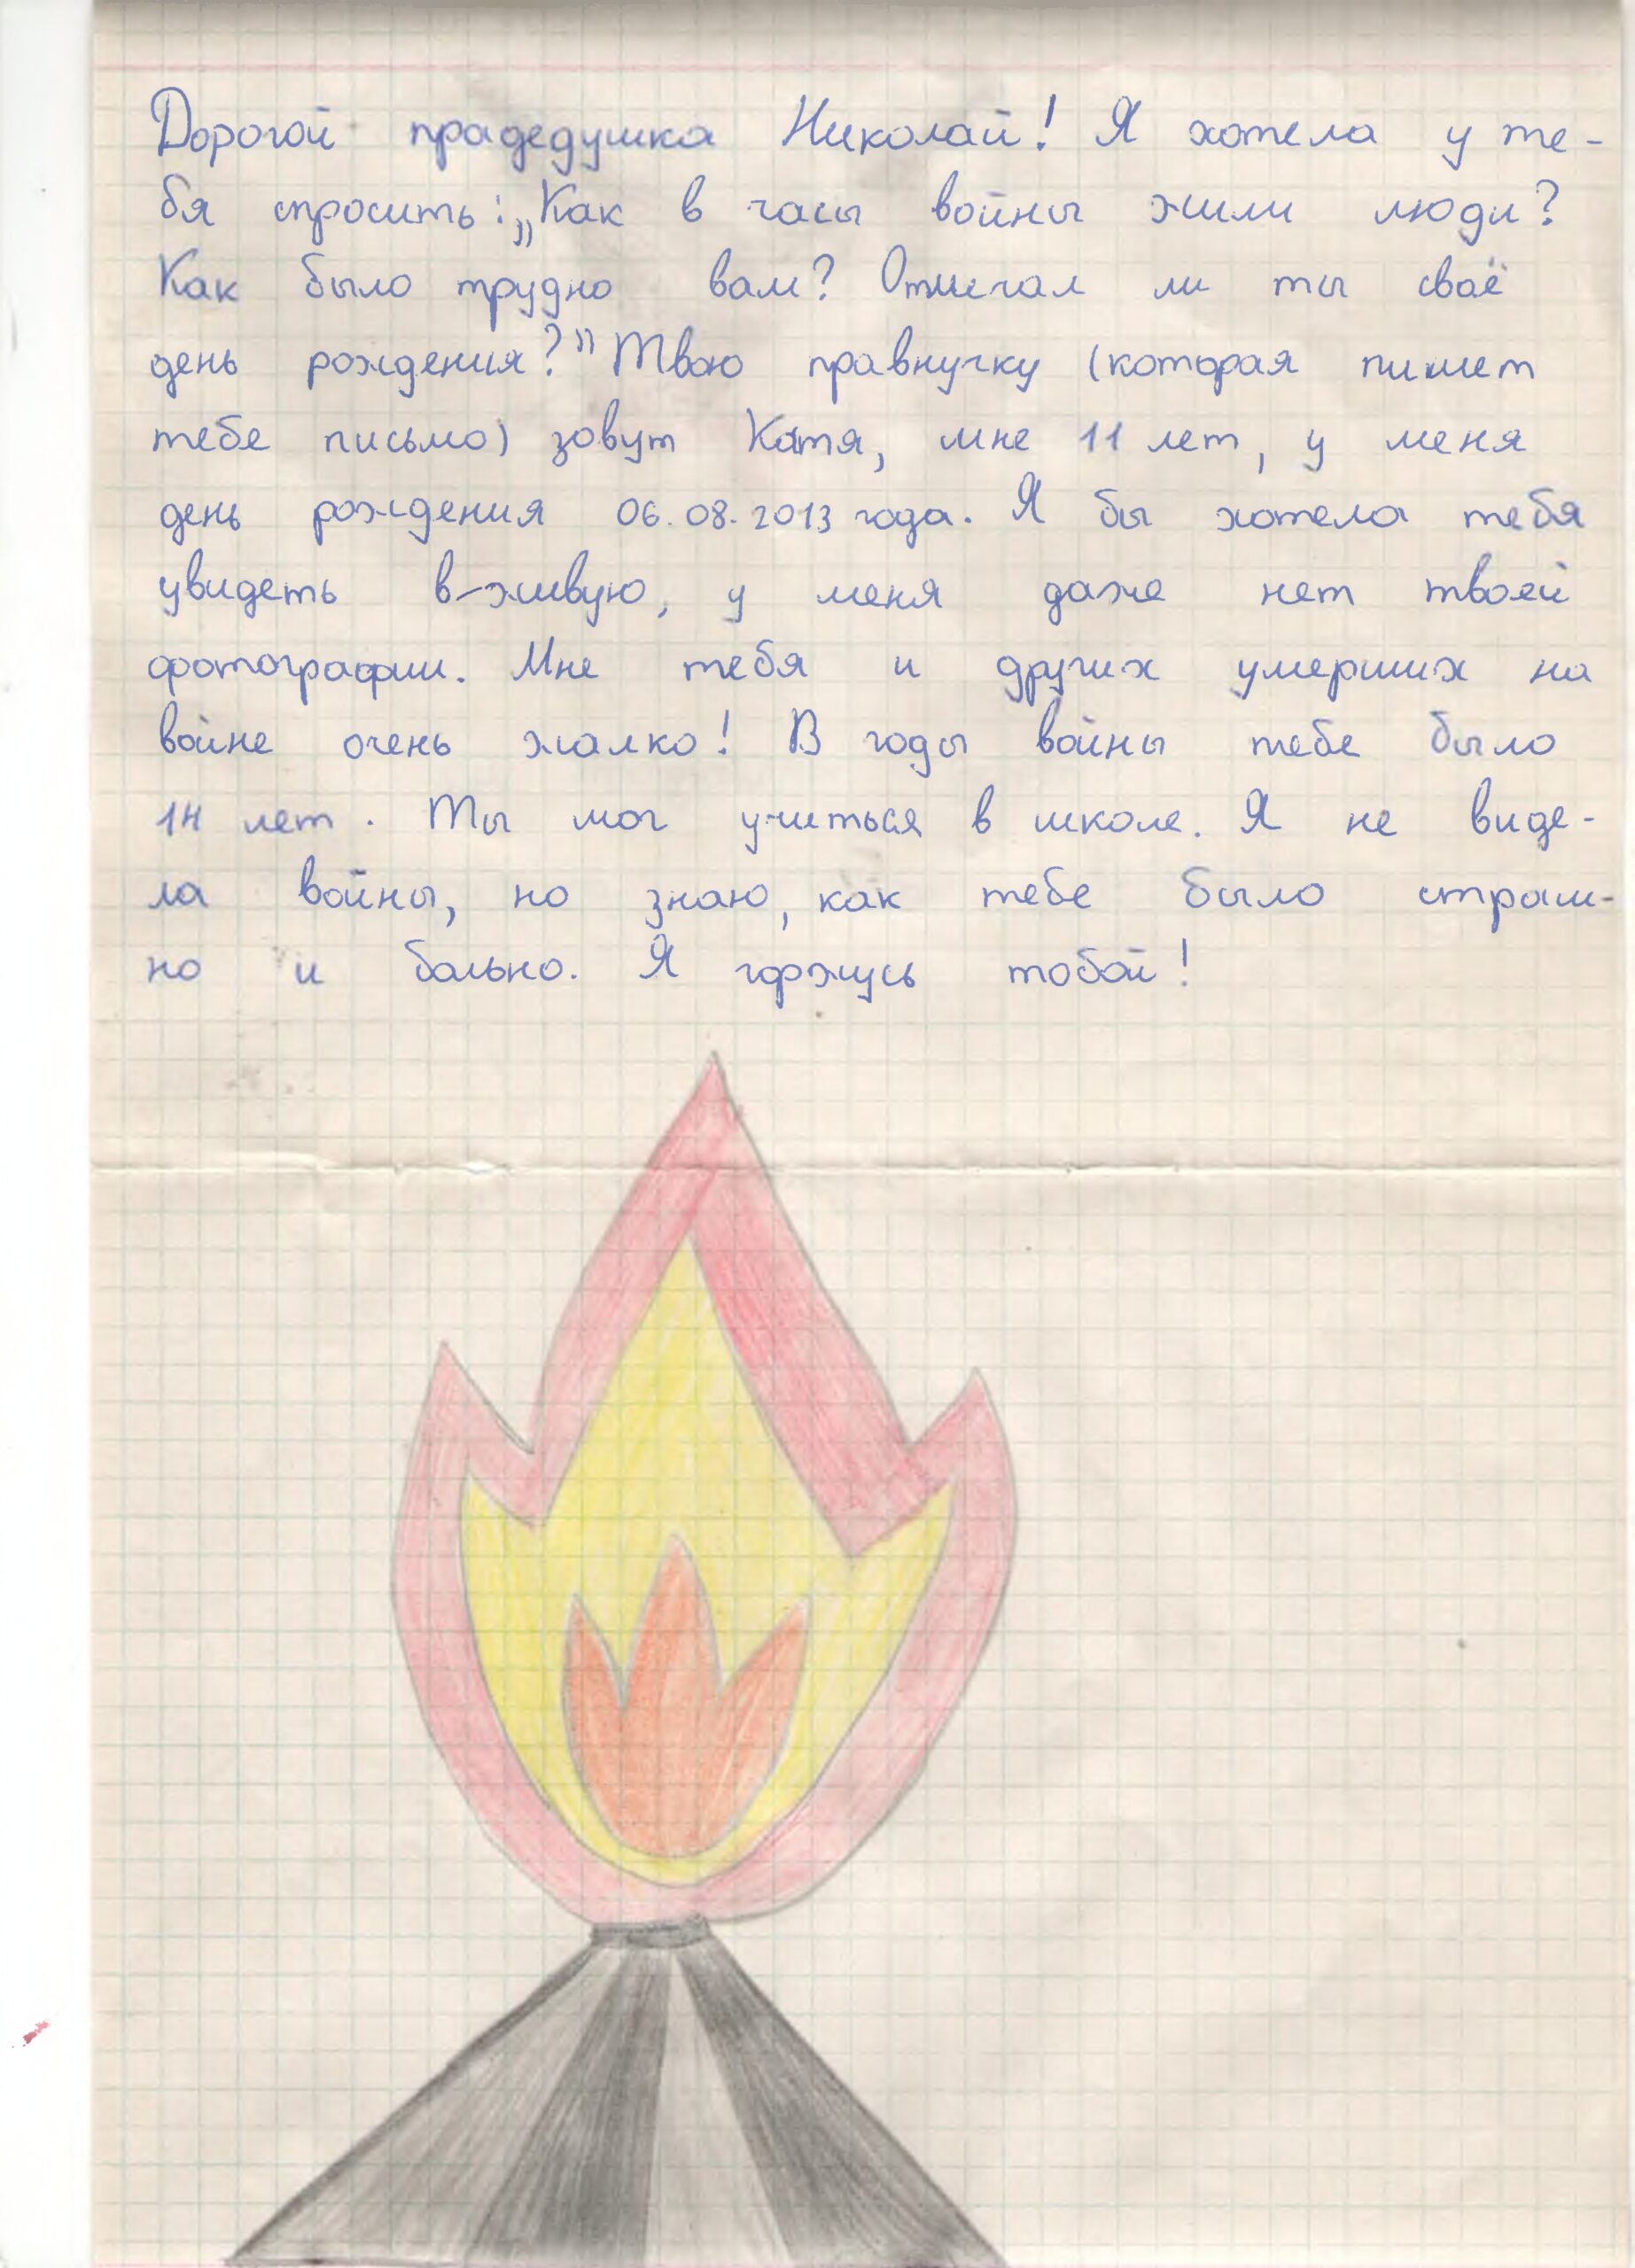 Дорогой прадедушка Николай! Я хотела у те-
бя спросить: „Как в часы войны жили люди?
Как было трудно вам? Отмечал ли ты своё
день рождения?” Твою правнучку (которая пишет
тебе письмо) зовут Катя, мне 11 лет, у меня
день рождения 06.08.2013 года. Я бы хотела тебя
увидеть в-живую, у меня даже нет твоей
фотографии. Мне тебя и других умерших на
войне очень жалко! В годы войны тебе было
14 лет. Ты мог учиться в школе. Я не виде-
ла войны, но знаю, как тебе было страш-
но и больно. Я горжусь тобой!